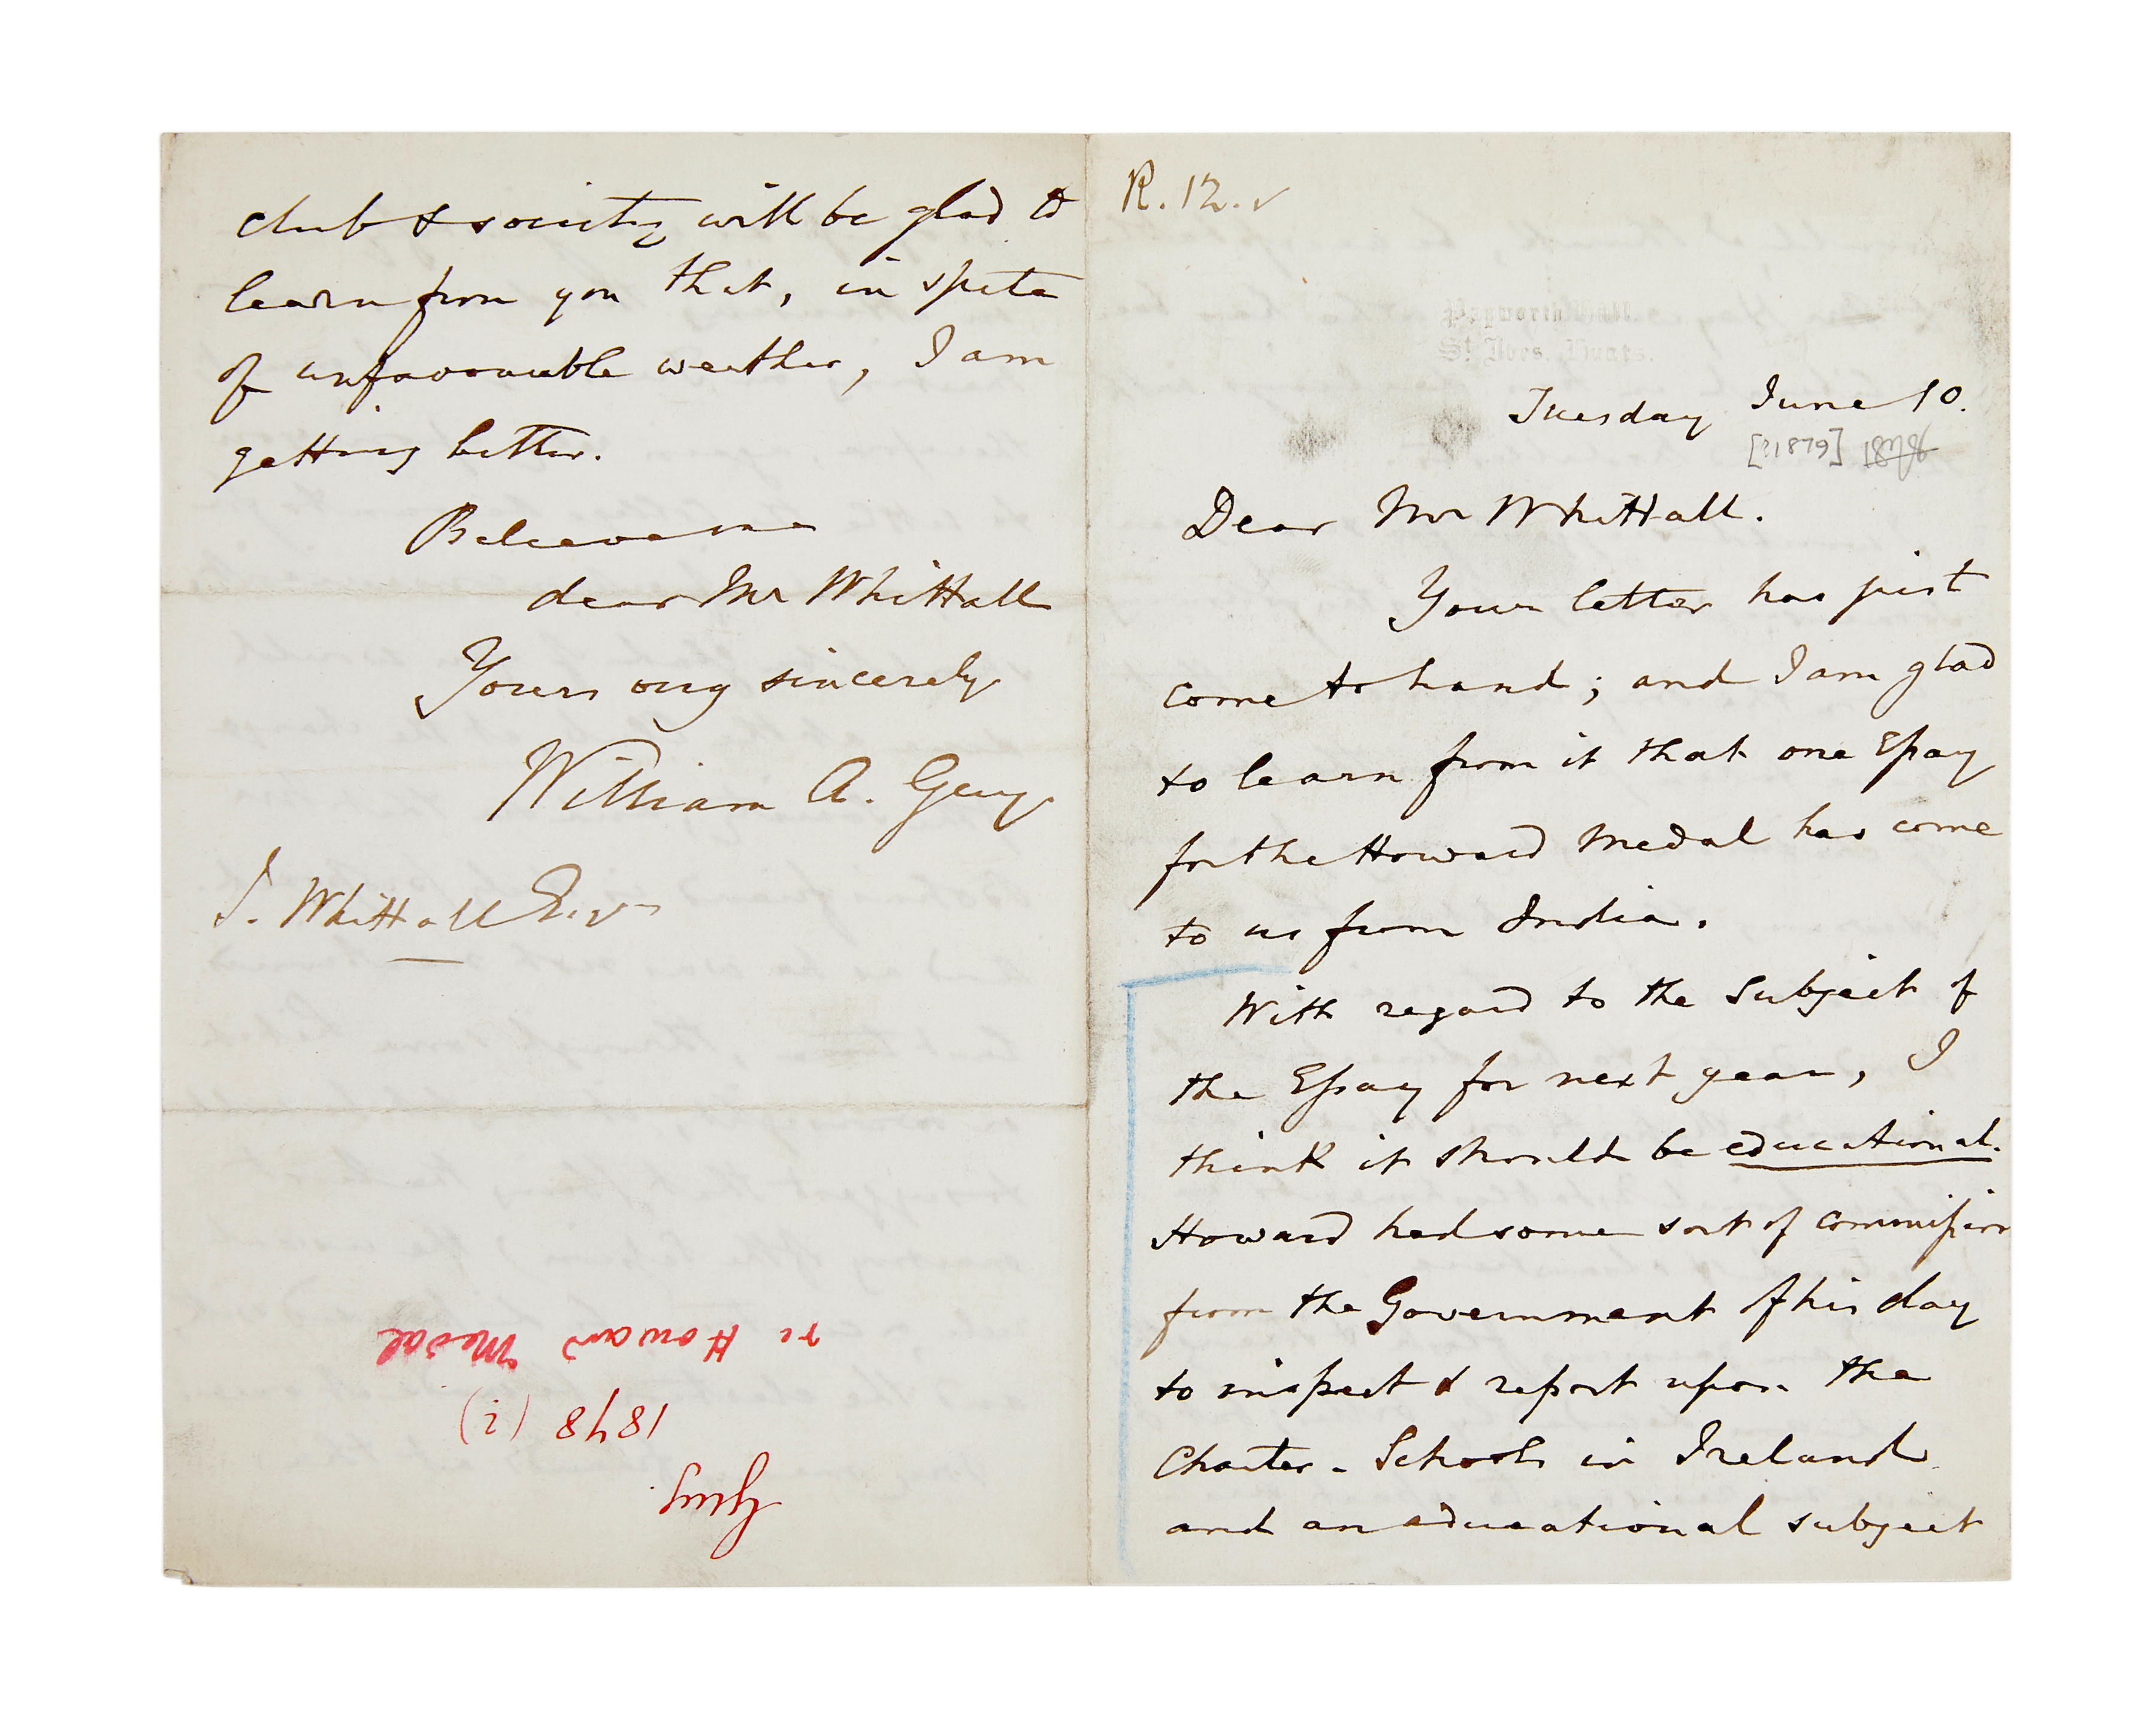 R. 12.
Papworth Hall.
St. Ives. Hunts.
Tuesday June 10.
[?1879]
Dear Mr Whittall.
Your letter has just
come to hand; and I am glad
to learn from it that one Essay
for the Howard Medal has come
to us from India.
With regard to the Subject of
the Essay for next year, I
think it should be educational.
Howard had some sort of commission
from the Government of his day
to inspect & report upon the
Charter-Schools in Ireland
and an educational subject
club & society will be glad to
learn from you that, in spite
of unfavourable weather, I am
getting better.
Believe me
dear Mr Whittall
Yours very sincerely
William A. Guy
J. Whittall Esqr
Guy.
1878 (i)
re Howard Medal